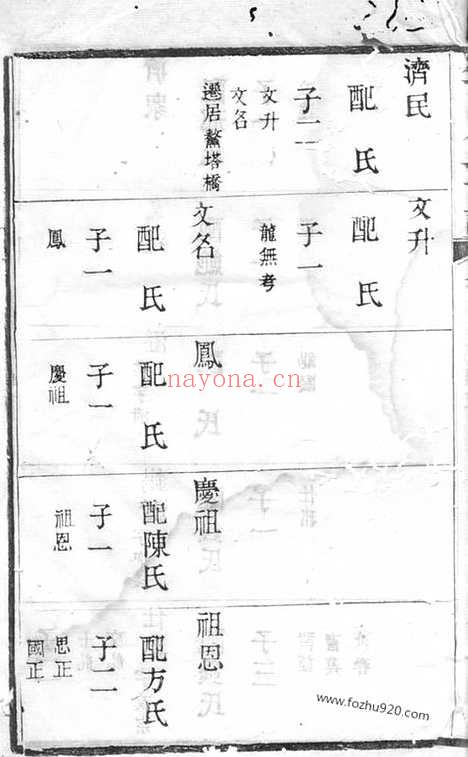 濟民
配 氏
子二
文升
文名
遷居鰲塔橋
文升
配 氏
子一
龍無考
文名
配 氏
子一
鳳
鳳
配 氏
子一
慶祖
慶祖
配陳氏
子一
祖恩
祖恩
配方氏
子二
思正
國正
nayona.cn
www.fozhu920.com